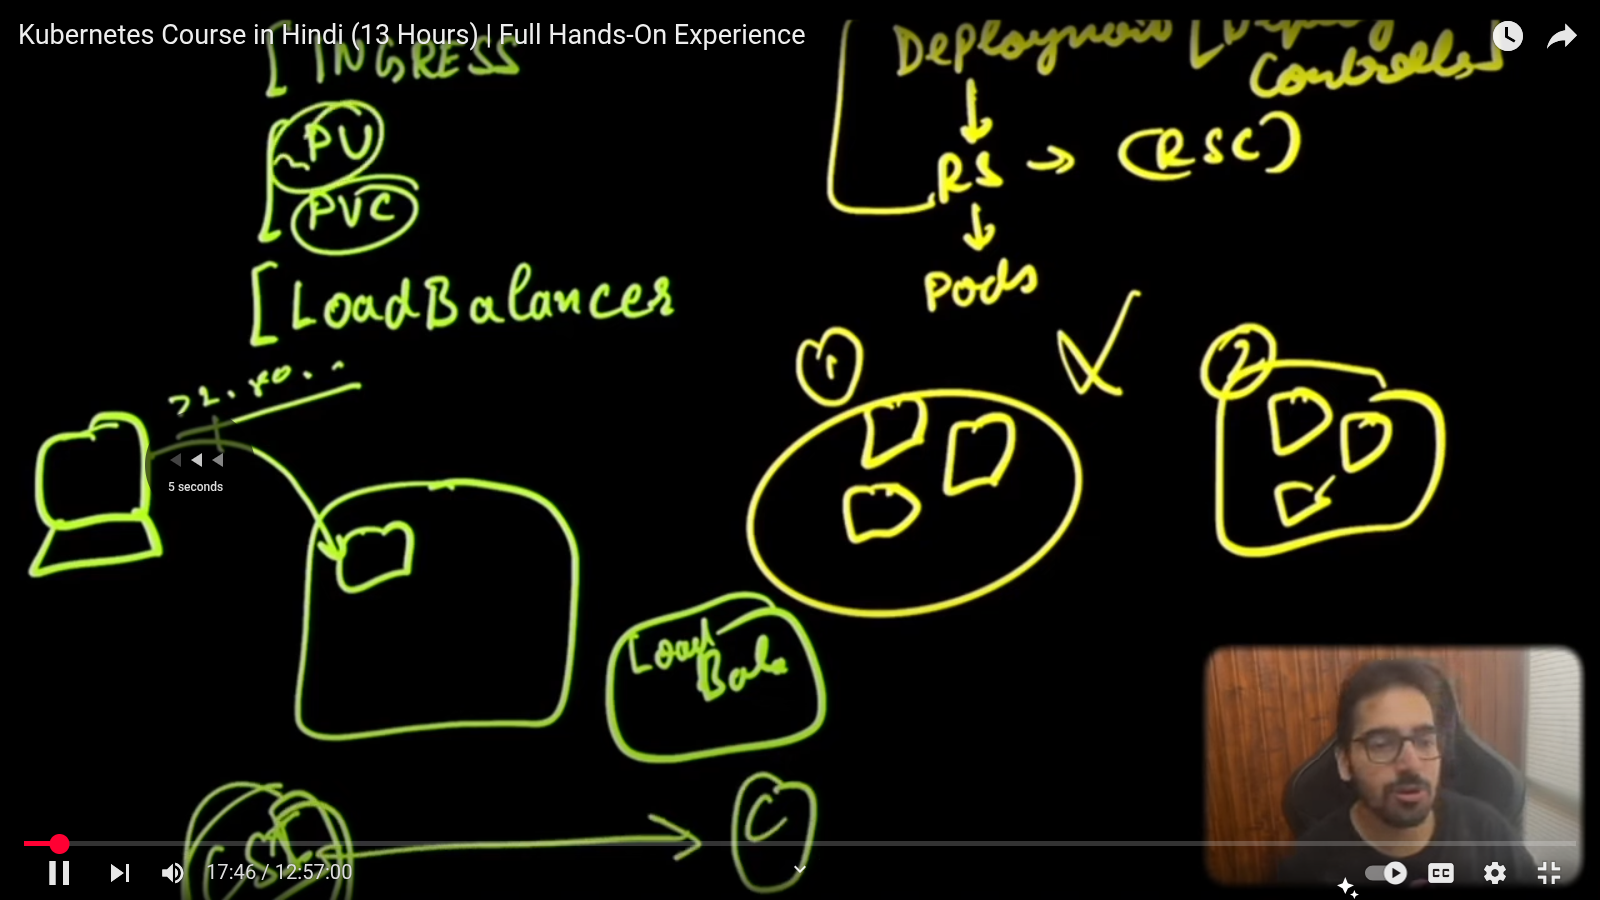 Kubernetes Course in Hindi (13 Hours) | Full Hands-On Experience
[ INGRESS
PV
PVC
[ LoadBalancer
Deployment
Controller]
RS → (RSC)
Pods
1
2
5 seconds
Load
Bala
C
17:46 / 12:57:00
CC